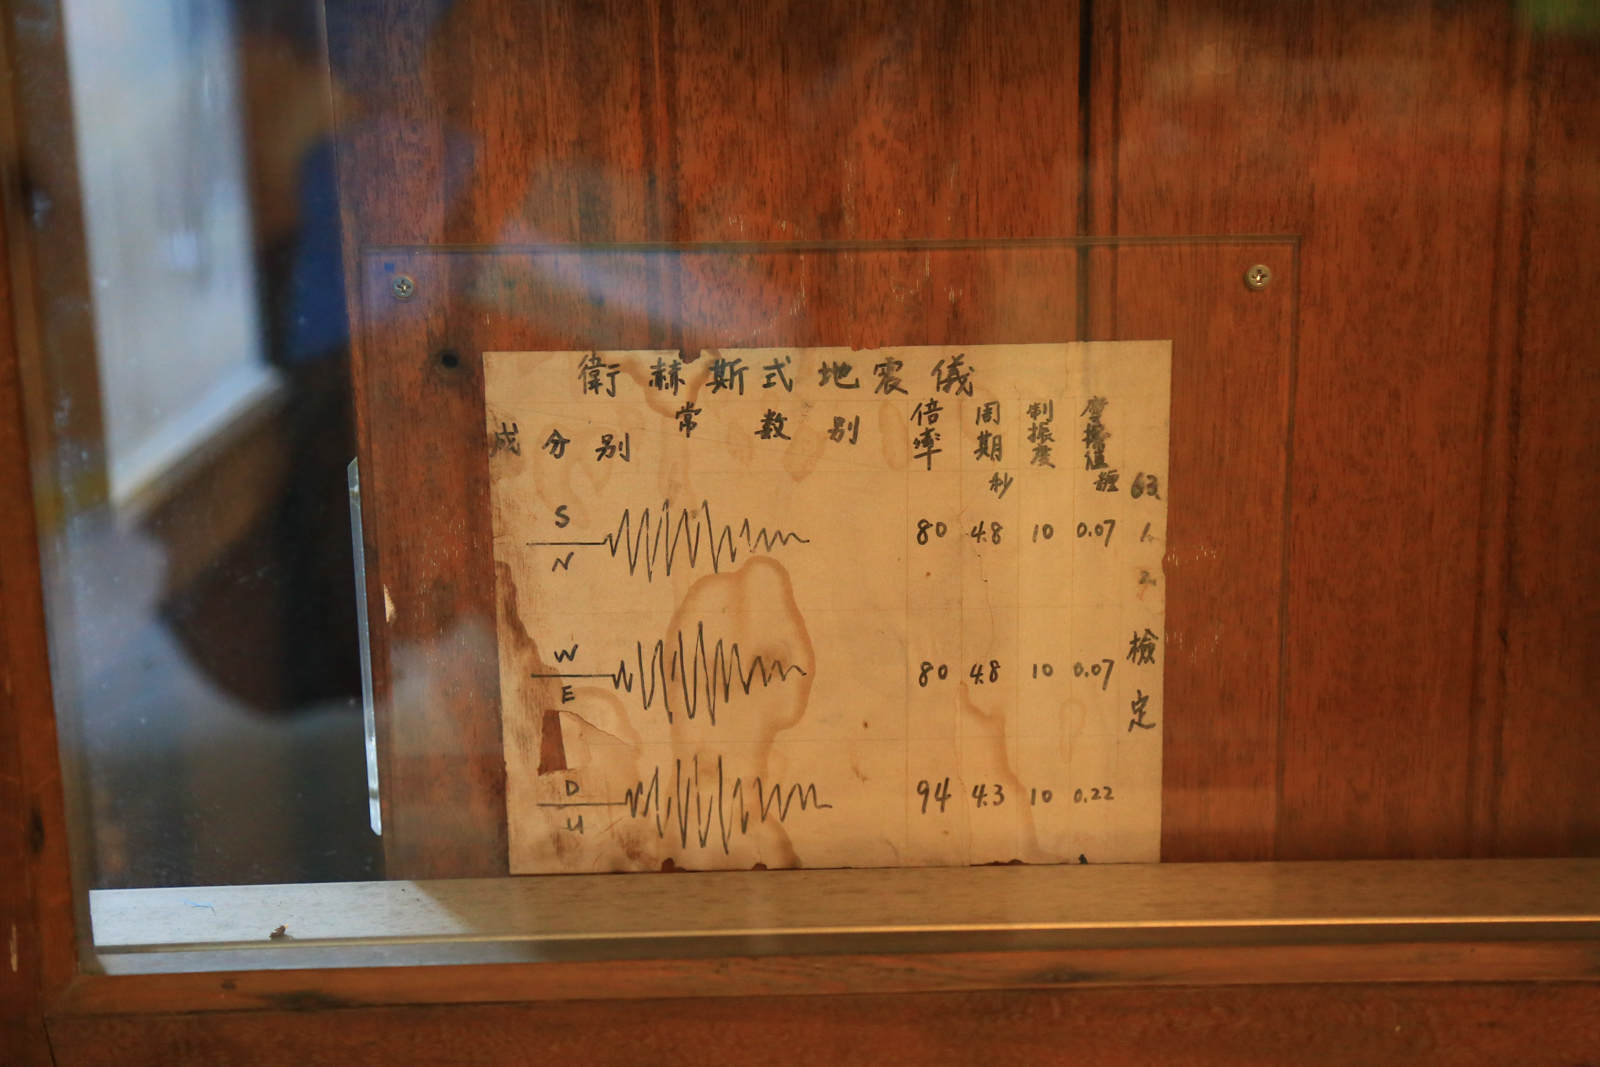 衛赫斯式地震儀
常数別
成分別
倍率
周期秒
制振度
摩擦值
S
N
80 4.8 10 0.07
W
E
80 4.8 10 0.07
D
U
94 4.3 10 0.22
63
1.
2.
檢定